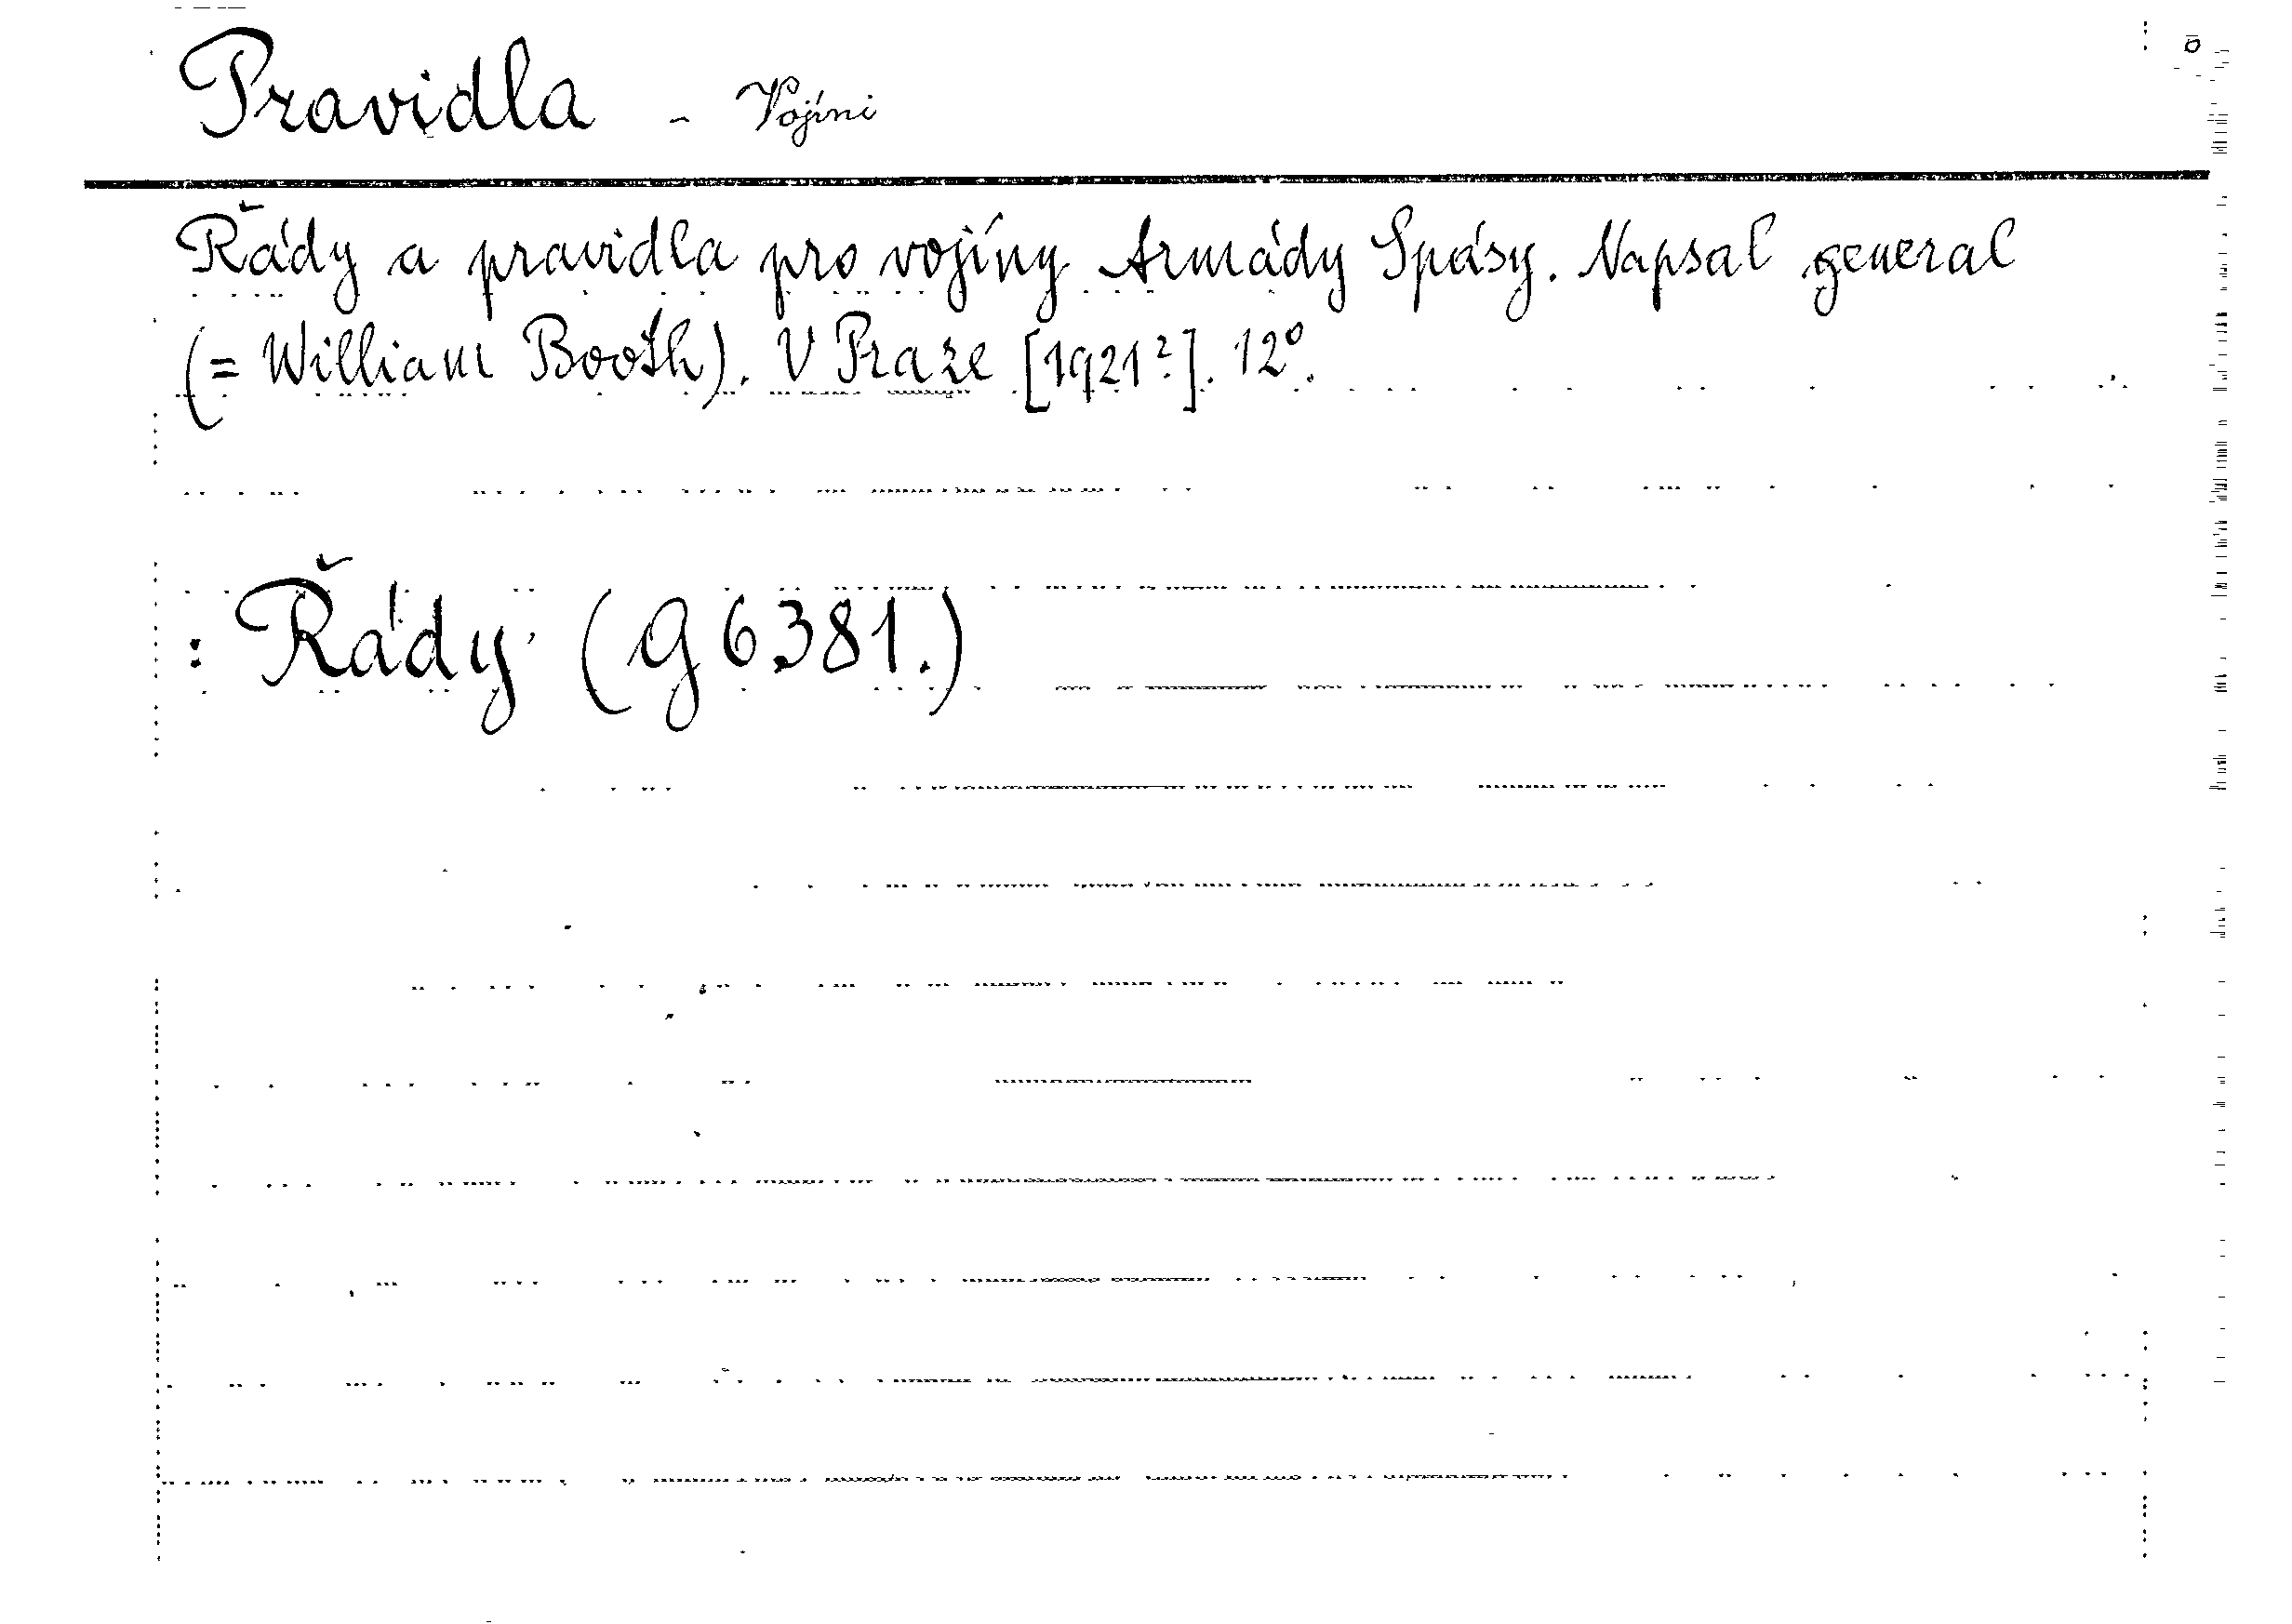 Pravidla - Vojíni
Řády a pravidla pro vojíny Armády Spásy. Napsal general
(= William Booth). V Praze [1921?]. 12°.
: Řády (G 6381.)